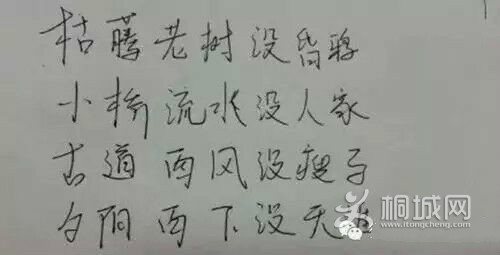 枯藤老树没昏鸦
小桥流水没人家
古道西风没瘦马
夕阳西下没天涯
桐城网
www.itongcheng.com